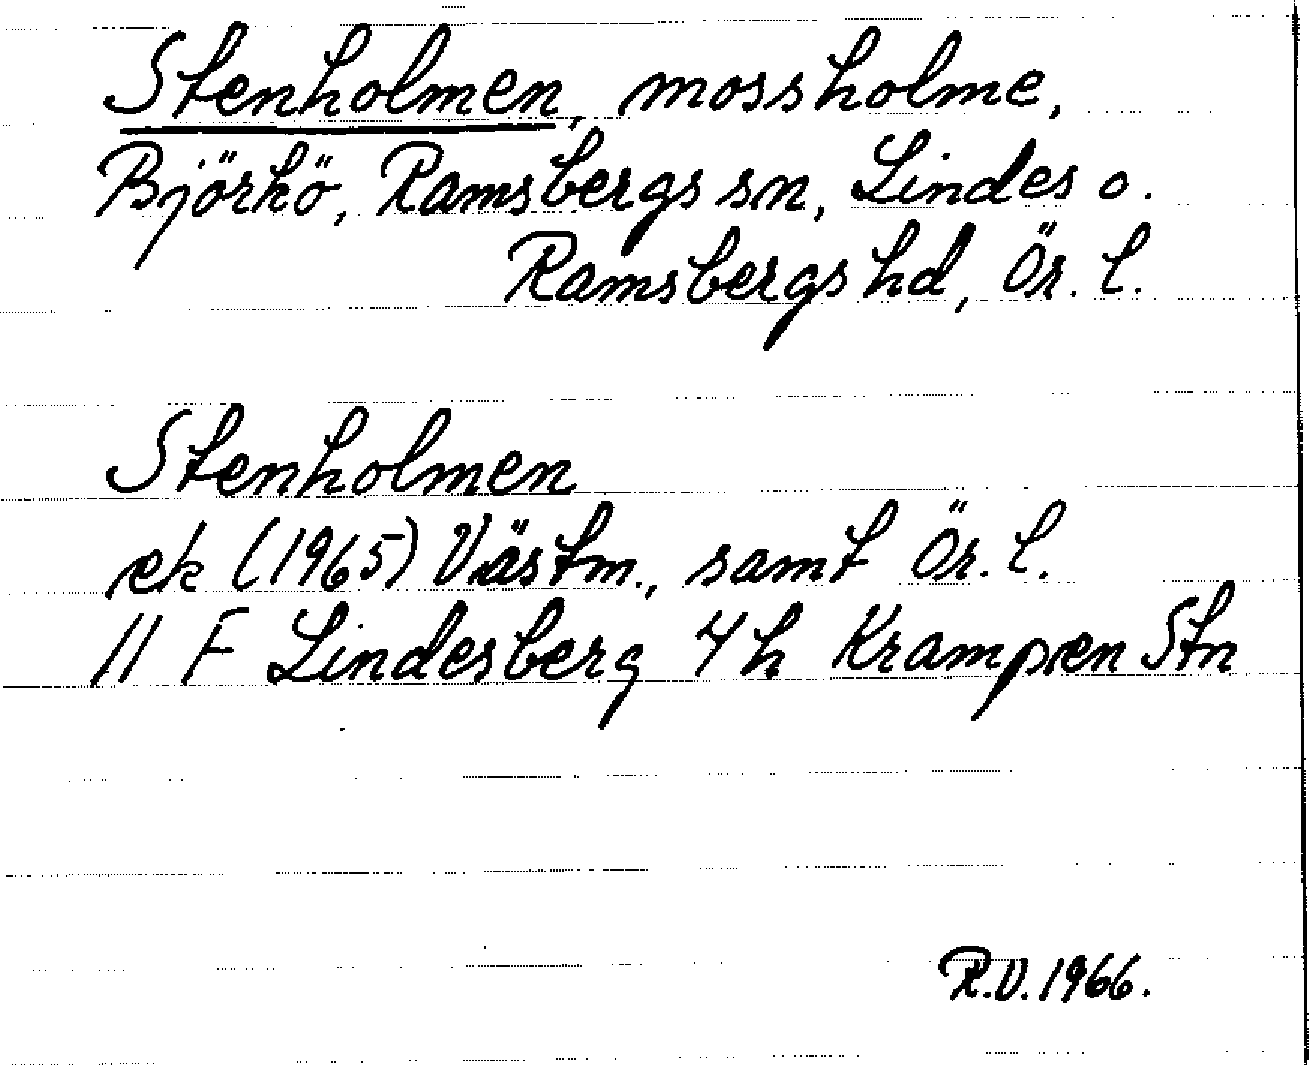 Stenholmen, mossholme,
Björkö, Ramsbergs sn, Lindes o.
Ramsbergs hd, Ör. l.
Stenholmen
ek (1965) Västm., samt Ör. l.
11 F Lindesberg 4 h Krampen Stn
R.V. 1966.